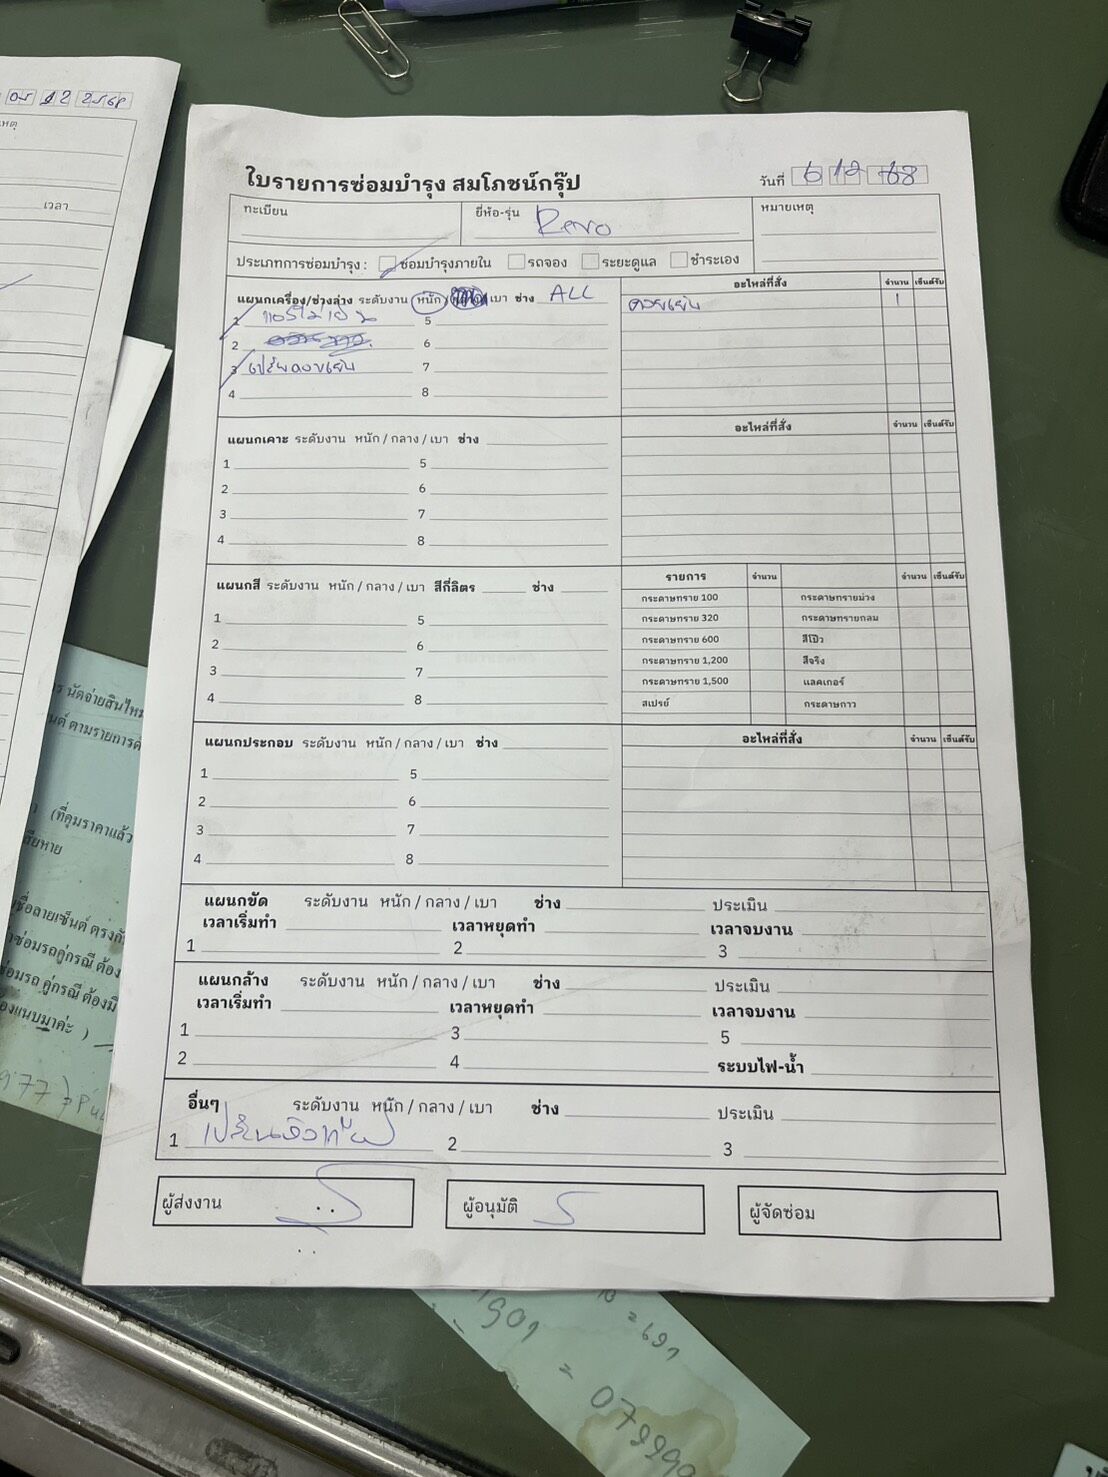 ใบรายการซ่อมบำรุง สมโภชน์กรุ๊ป
วันที่ 6 12 68
ทะเบียน
ยี่ห้อ-รุ่น Revo
หมายเหตุ
ประเภทการซ่อมบำรุง : ซ่อมบำรุงภายใน รถจอง ระยะดูแล ชำระเอง
แผนกเครื่อง/ช่วงล่าง ระดับงาน หนัก เบา ช่าง ALL
อะไหล่ที่สั่ง จำนวน เซ็นต์รับ
คอยเย็น 1
1 แอร์ไม่เย็น 5
2 6
3 เปลี่ยนคอยเย็น 7
4 8
แผนกเคาะ ระดับงาน หนัก / กลาง / เบา ช่าง
อะไหล่ที่สั่ง จำนวน เซ็นต์รับ
1 5
2 6
3 7
4 8
แผนกสี ระดับงาน หนัก / กลาง / เบา สีกี่ลิตร ช่าง
รายการ จำนวน จำนวน เซ็นต์รับ
กระดาษทราย 100 กระดาษทรายม่วง
กระดาษทราย 320 กระดาษทรายกลม
กระดาษทราย 600 สีโป๊ว
กระดาษทราย 1,200 สีจริง
กระดาษทราย 1,500 แลคเกอร์
สเปรย์ กระดาษกาว
1 5
2 6
3 7
4 8
แผนกประกอบ ระดับงาน หนัก / กลาง / เบา ช่าง
อะไหล่ที่สั่ง จำนวน เซ็นต์รับ
1 5
2 6
3 7
4 8
แผนกขัด ระดับงาน หนัก / กลาง / เบา ช่าง ประเมิน
เวลาเริ่มทำ เวลาหยุดทำ เวลาจบงาน
1 2 3
แผนกล้าง ระดับงาน หนัก / กลาง / เบา ช่าง ประเมิน
เวลาเริ่มทำ เวลาหยุดทำ เวลาจบงาน
1 3 5
2 4 ระบบไฟ-น้ำ
อื่นๆ ระดับงาน หนัก / กลาง / เบา ช่าง ประเมิน
1 2 3
ผู้ส่งงาน
ผู้อนุมัติ
ผู้จัดซ่อม
05 12 2568
เวลา
นัดจ่ายสินไหม
ตามรายการ
(ที่คุมราคาแล้ว
ชื่อลายเซ็นต์ ตรง
ซ่อมรถคู่กรณี ต้อง
ซ่อมรถ คู่กรณี ต้องมี
องแนบมาค่ะ )
= 697